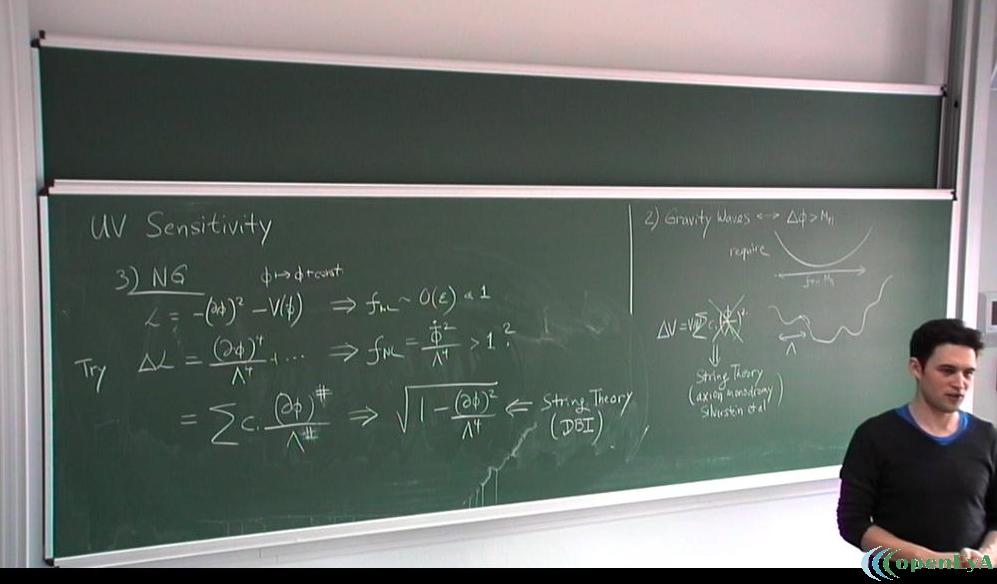 UV Sensitivity
3) NG   ϕ ↦ ϕ + const
ℒ = -(∂ϕ)² - V(ϕ) ⇒ f_NL ~ O(ε) < 1
Try Δℒ = (∂ϕ)⁴/Λ⁴ + ... ⇒ f_NL = ϕ̇²/Λ⁴ > 1 ?
= ∑ c. (∂ϕ)^#/Λ^# ⇒ √(1 - (∂ϕ)²/Λ⁴) ⇐ String Theory
(DBI)
2) Gravity Waves ↔ Δϕ > M_Pl
require
Λ
⇓
String Theory
(axion monodromy
Silverstein et al)
openEyA